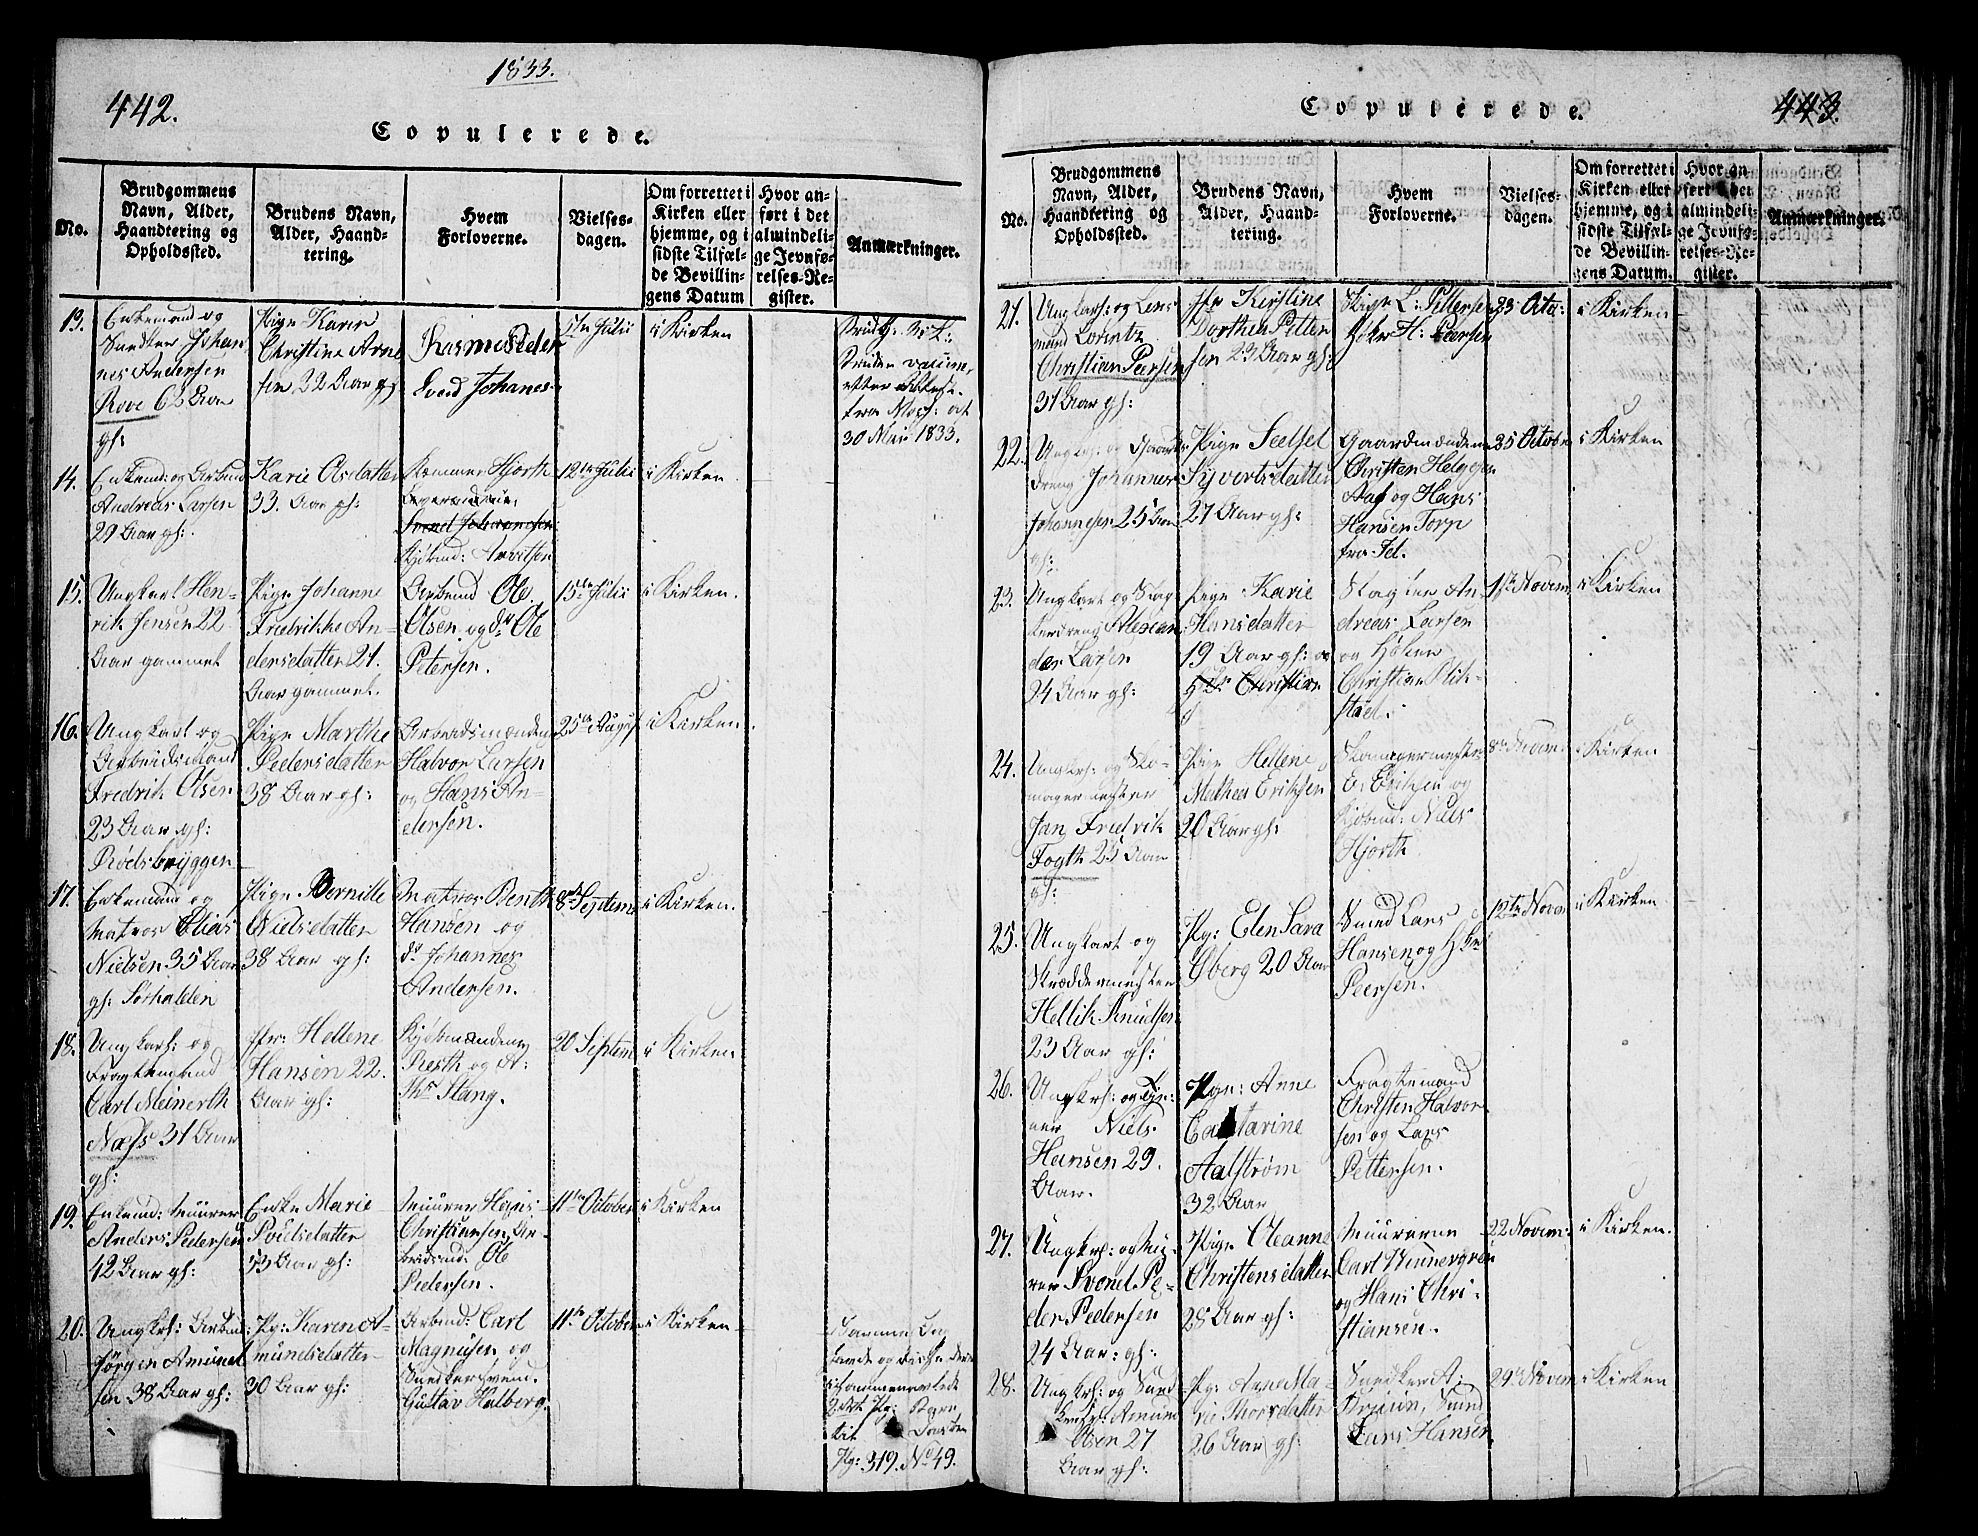 1833.
442.
Copulerede.
No.
Brudgommens
Navn, Alder,
Haandtering og
Opholdssted.
Brudens Navn,
Alder, Haand-
tering.
Hvem
Forloverne.
Vielses-
dagen.
Om forrettet i
Kirken eller
hjemme, og i
sidste Tilfæl-
de Bevillin-
gens Datum
Hvor an-
ført i det
almindeli-
ge Jevnfø-
relses-Re-
gister.
Anmærkninger.
13.
Enkemand og
Snedker Johan
nes Andersen
Rove 63 Aar
gl:
Pige Karen
Christine Arne
sen 32 Aar gl
Rasmus Peder
Svend Johannes
Julii
i Kirken
Bruden vaccine,
efter Attest
fra
30 Mai 1833.
14.
Enkemd: og Arbmd
Andreas Larsen
29 Aar gl:
Karie Olsdatter
33. Aar gl:
Kæmner Hjorth
Svend Johannesen
Kjøbmd: Arvetsen
12te Julii
i Kirken
15.
Ungkarl Hen-
rik Jensen 22
Aar gammel
Pige Johanne
Fredrikke An-
dersdatter 21.
Aar gammel.
Arbmd Ole
Olsen, og do Ole
Petersen.
15de Julii
i Kirken.
16.
Ungkarl og
Arbeidsmand
Fredrik Olsen
23 Aar gl:
Rødsbryggen
Pige Marthe
Pedersdatter
38 Aar gl:
Arbeidsmændene
Halvor Larsen
og Hans An-
dersen.
25de August
i Kirken.
17.
Enkemand og
Matros Elias
Nielsen 35 Aar
gl: Sørhalden
Pige Pernille
Nielsdatter
38 Aar gl:
Matros Benth
Hansen og
do Johannes
Andersen.
8de Septem
i Kirken.
18.
Ungkarl: og
Fragtemand
Carl Meinerth
Næss 31 Aar
gl:
Hellene
Hansen 22.
Aar gl:
Kjøbmændene
Resth og A:
Ths Stang.
20 Septem
i Kirken.
19.
Enkmd: Muurer
Anders Pedersen
42 Aar gl:
Enke Marie
Povelsdatter
53 Aar gl:
Muurer Hans
Christiansen, Ar-
beidsmd. Ole
Pedersen.
11te October
i Kirken
20.
Ungkrl: Arbmd
Jørgen Amund
sen 38 Aar gl:
Pg: Karen A-
mundsdatter
30 Aar gl:
Arbmd: Carl
Magnusen og
Snedkersvend.
Gustav Halberg.
11te October
i Kirken
Samme Dag
Pg: 319. No 49.
Copulerede.
443.
No.
Brudgommens
Navn, Alder,
Haandtering og
Opholdssted.
Brudens Navn,
Alder, Haand-
tering.
Hvem
Forloverne.
Vielses-
dagen.
Om forrettet i
Kirken eller
hjemme, og i
sidste Tilfæl-
de Bevillin-
gens Datum.
Hvor an
ført i det
almindeli-
ge Jevnfø-
relses-Re-
gister.
Anmærkninger.
21.
Ungkarl: og Lens
mand Lorintz
Christian Peersen
31 Aar gl:
Kirstine
Dorthea Petter
sen 23 Aar gl:
L: Pettersen
H: Peersen
23 Octo:
i Kirken
22.
Ungkrl: og Gaards
dreng Johannes
Johannesen 25 Aar
gl:
Pige Seelsel
Syvertsdatter
27 Aar gl:
Gaardmændene
Christen Helgesen
Aas og Hans
Hansen Torp
fra Id.
25 October
i Kirken
23.
Ungkarl og
Alexan
der Larsen
24 Aar gl:
Pige Karie
Hansdatter
19 Aar gl: og
Christian
Slagter An
dreas Larsen
og Høker
Christian Blik-
stad.
1ste Novem
i Kirken
24.
Ungkrl: og Sko-
magermester
Jan Fredrik
Fogth 25 Aar
gl:
Pige Hellene
Mathea Eriksen
20 Aar gl:
Skomagermester
E. Eriksen og
Kjøbmd: Niels
Hjorth
8de Novem:
i Kirken
25.
Ungkarl og
Skræddermester
Hellik Knudsen
23 Aar gl:
Pg: Elen Sara
Oberg 20 Aar
Smed Lars
Hansen og Hkr
Peersen.
12te Novem
i Kirken
26.
Ungkrl: og
Niels
Hansen 29.
Aar.
Pge: Anne
Catarine
Aalstrøm
32 Aar
Fragtemand
Christen Halvor
sen og Lars
Pettersen.
27.
Ungkrl: og Mu-
rer Svend Pe-
der Pedersen
24 Aar: gl:
Pige Oleanne
Christensdatter
28 Aar gl:
Muurerne
Carl Wennergren
og Hans Chri-
stiansen.
22 Novem:
i Kirken.
28.
Ungkrl: og Sned
ker Amund
Olsen 27
Aar gl:
Pg: Anne Ma-
rie Thorsdatter
26 Aar gl:
Snedker A:
Bruun, Smed
Lars Hansen.
29de Novem
i Kirken